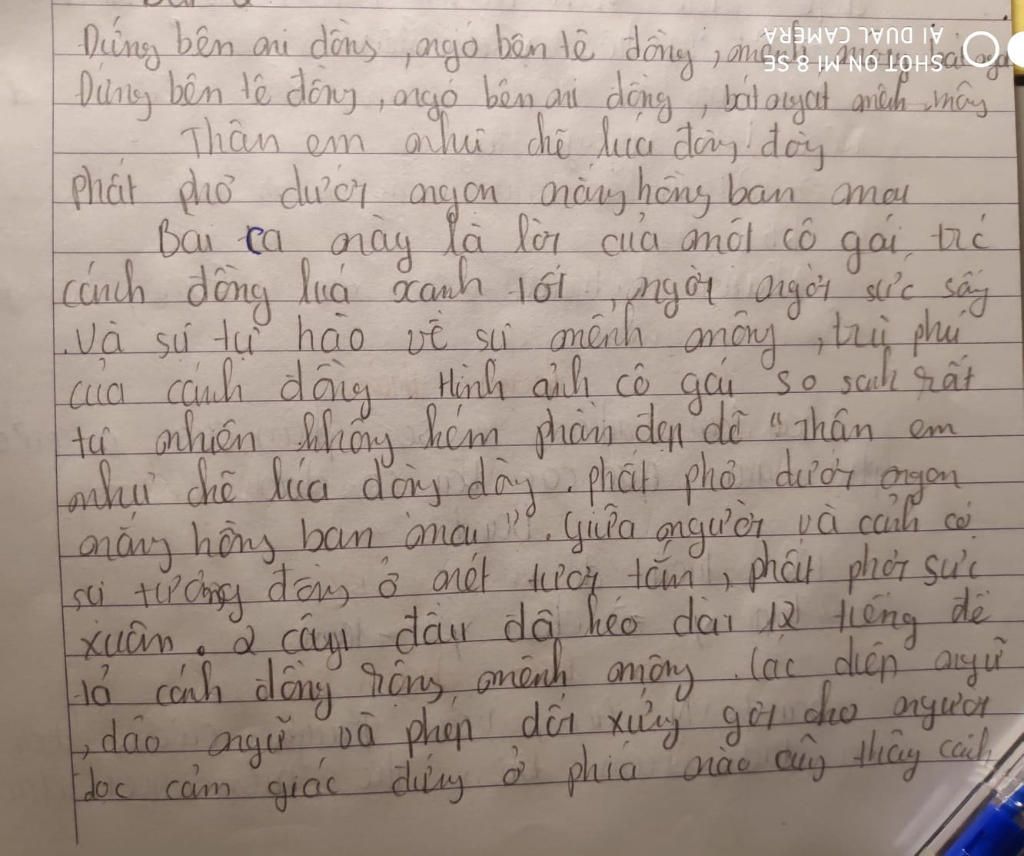 Đứng bên ni đồng, ngó bên tê đồng, mênh mông bát ngát
Đứng bên tê đồng, ngó bên ni đồng, bát ngát mênh mông
Thân em như chẽ lúa đòng đòng
phất phơ dưới ngọn nắng hồng ban mai
Bài ca này là lời của một cô gái, trước
cánh đồng lúa xanh tốt, ngời ngời sức sống
Và sự tự hào về sự mênh mông, trù phú
của cánh đồng. Hình ảnh cô gái so sánh rất
tự nhiên không kém phần đẹp đẽ "Thân em
như chẽ lúa đòng đòng. phất phơ dưới ngọn
nắng hồng ban mai". giữa người và cảnh có
sự tương đồng ở nét tươi tắn, phơi phới sức
xuân. 2 câu đầu đã kéo dài 12 tiếng để
tả cánh đồng rộng mênh mông. Các điệp ngữ
, đảo ngữ và phép đối xứng gợi cho người
đọc cảm giác đứng ở phía nào cũng thấy cánh
SHOT ON MI 8 SE
AI DUAL CAMERA